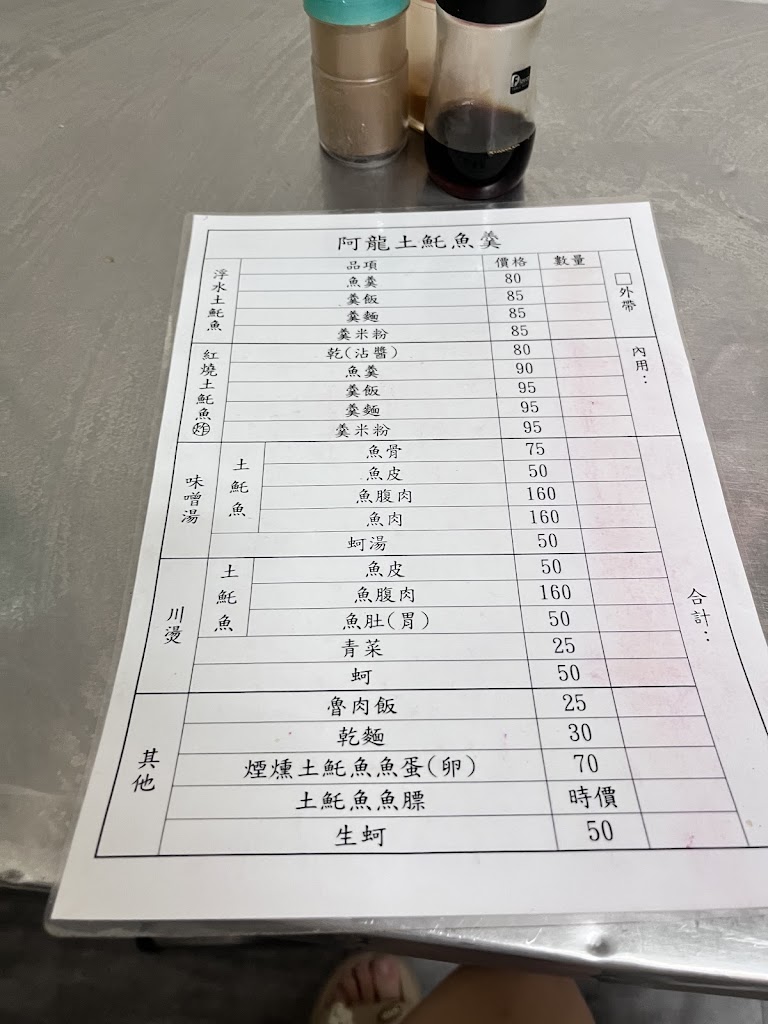 阿龍土魠魚羹
品項 價格 數量
浮水土魠魚
魚羹 80
羹飯 85
羹麵 85
羹米粉 85
□外帶
紅燒土魠魚㊣炸
乾(沾醬) 80
魚羹 90
羹飯 95
羹麵 95
羹米粉 95
內用：
味噌湯
土魠魚
魚骨 75
魚皮 50
魚腹肉 160
魚肉 160
蚵湯 50
川燙
土魠魚
魚皮 50
魚腹肉 160
魚肚(胃) 50
青菜 25
蚵 50
合計：
其他
魯肉飯 25
乾麵 30
煙燻土魠魚魚蛋(卵) 70
土魠魚魚膘 時價
生蚵 50